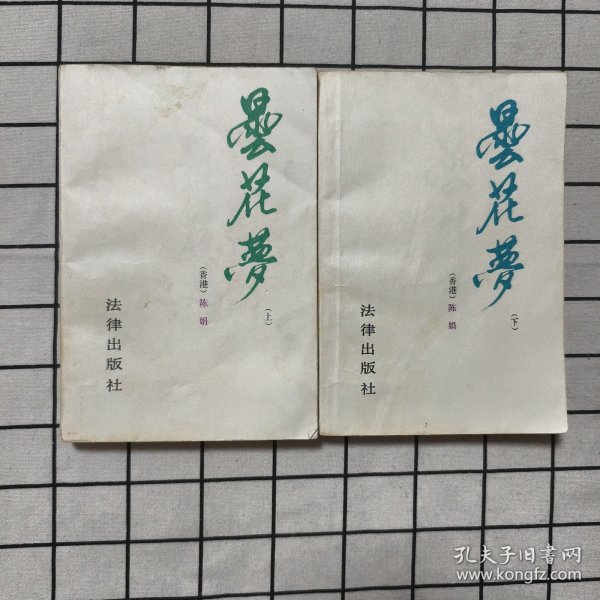 曇花夢
(上)
(香港)陈娟
法律出版社
曇花夢
(下)
(香港)陈娟
法律出版社
孔夫子旧书网
www.kongfz.com